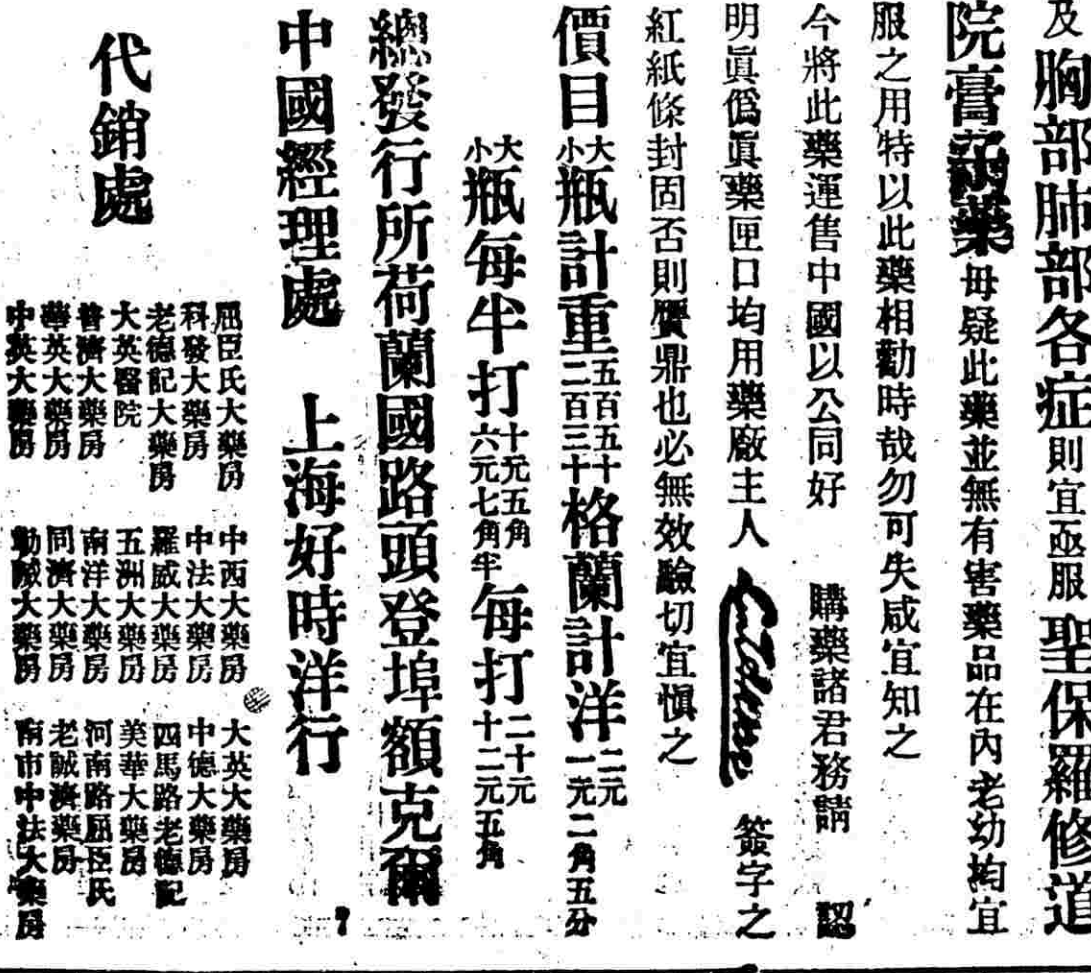 及胸部肺部各症則宜亟服聖保羅修道
院膏藥毋疑此藥並無有害藥品在內老幼均宜
服之用特以此藥相勸時哉勿可失咸宜知之
今將此藥運售中國以公同好 購藥諸君務請 認
明眞僞眞藥匣口均用藥廠主人 簽字之
紅紙條封固否則贋鼎也必無效驗切宜愼之
價目大小瓶計重五百五十二百三十格蘭計洋二元一元二角五分
大小瓶每半打十元五角六元七角半每打二十元十二元五角
總發行所荷蘭國路頭登埠額克爾
中國經理處 上海好時洋行
代銷處
屈臣氏大藥房 中西大藥房 大英大藥房
科發大藥房 中法大藥房 中德大藥房
老德記大藥房 羅威大藥房 四馬路老德記
大英醫院 五洲大藥房 美華大藥房
普濟大藥房 南洋大藥房 河南路屈臣氏
華英大藥房 同濟大藥房 老誠濟藥房
中英大藥房 大藥房 南市中法大藥房
7